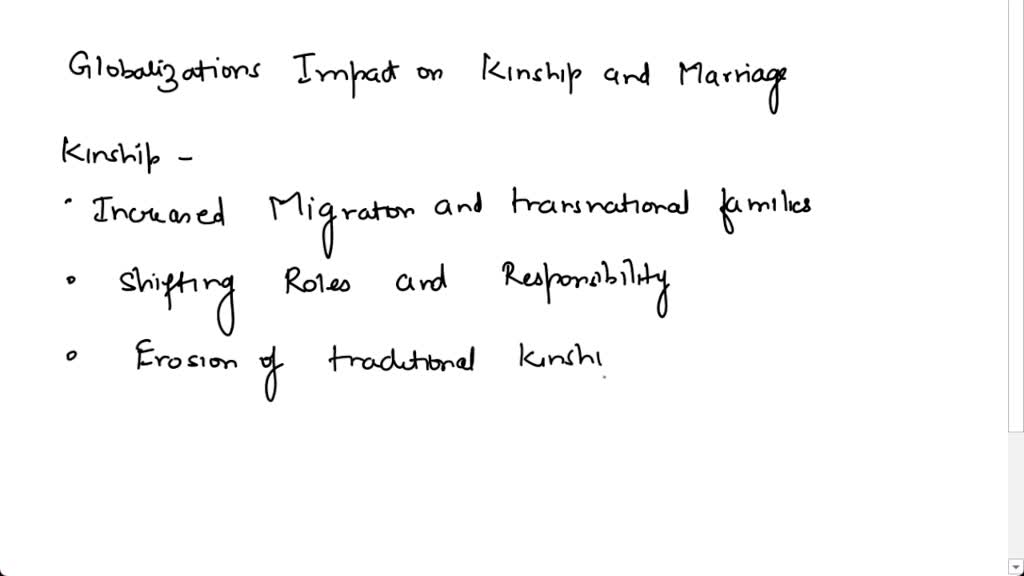 Globalizations Impact on Kinship and Marriage
Kinship -
• Increased Migration and transnational families
• Shifting Roles and Responsibility
• Erosion of traditional Kinshi